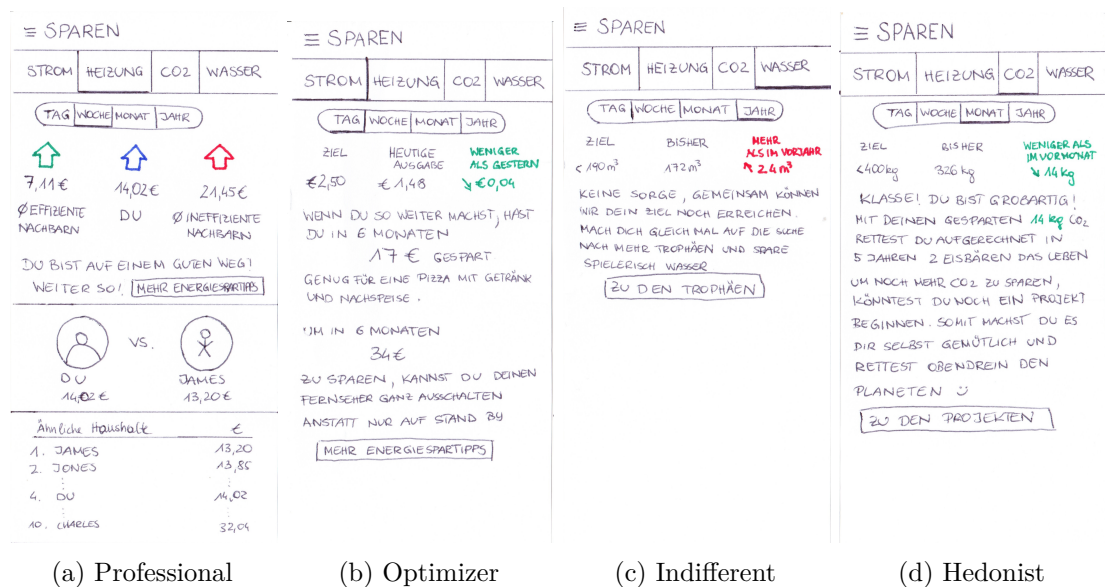 ≡ SPAREN
STROM HEIZUNG CO2 WASSER
TAG WOCHE MONAT JAHR
7,11€ 14,02€ 21,45€
Ø EFFIZIENTE NACHBARN
DU
Ø INEFFIZIENTE NACHBARN
DU BIST AUF EINEM GUTEN WEG!
WEITER SO! MEHR ENERGIESPARTIPPS
VS.
DU JAMES
14,02€ 13,20€
Ähnliche Haushalte €
1. JAMES 13,20
2. JONES 13,85
4. DU 14,02
10. CHARLES 32,04
(a) Professional
≡ SPAREN
STROM HEIZUNG CO2 WASSER
TAG WOCHE MONAT JAHR
ZIEL HEUTIGE AUSGABE WENIGER ALS GESTERN
€2,50 €1,48 ↘€0,04
WENN DU SO WEITER MACHST, HAST
DU IN 6 MONATEN
17 € GESPART
GENUG FÜR EINE PIZZA MIT GETRÄNK
UND NACHSPEISE.
UM IN 6 MONATEN
34€
ZU SPAREN, KANNST DU DEINEN
FERNSEHER GANZ AUSSCHALTEN
ANSTATT NUR AUF STAND BY
MEHR ENERGIESPARTIPPS
(b) Optimizer
≡ SPAREN
STROM HEIZUNG CO2 WASSER
TAG WOCHE MONAT JAHR
ZIEL BISHER MEHR ALS IM VORJAHR
<190m³ 172m³ ↖24m³
KEINE SORGE, GEMEINSAM KÖNNEN
WIR DEIN ZIEL NOCH ERREICHEN.
MACH DICH GLEICH MAL AUF DIE SUCHE
NACH MEHR TROPHÄEN UND SPARE
SPIELERISCH WASSER
ZU DEN TROPHÄEN
(c) Indifferent
≡ SPAREN
STROM HEIZUNG CO2 WASSER
TAG WOCHE MONAT JAHR
ZIEL BISHER WENIGER ALS IM VORMONAT
<400kg 326kg ↘14kg
KLASSE! DU BIST GROßARTIG!
MIT DEINEN GESPARTEN 14 kg CO2
RETTEST DU AUFGERECHNET IN
5 JAHREN 2 EISBÄREN DAS LEBEN
UM NOCH MEHR CO2 ZU SPAREN,
KÖNNTEST DU NOCH EIN PROJEKT
BEGINNEN. SOMIT MACHST DU ES
DIR SELBST GEMÜTLICH UND
RETTEST OBENDREIN DEN
PLANETEN ü
ZU DEN PROJEKTEN
(d) Hedonist